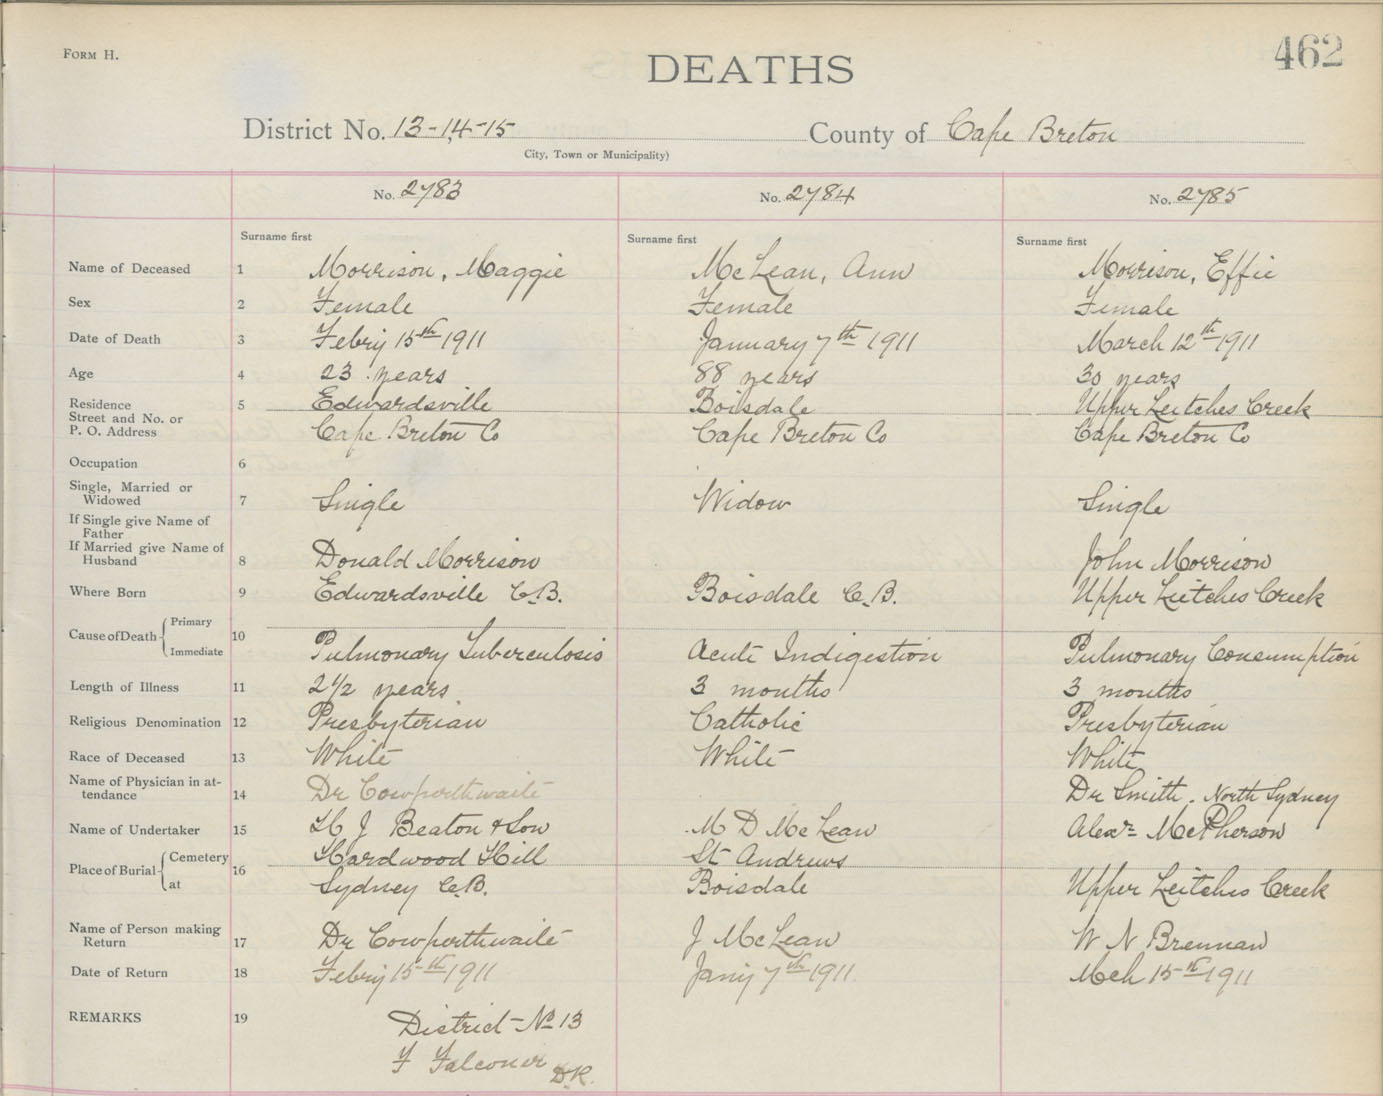 FORM H.
462
DEATHS
District No. 13-14-15 County of Cape Breton
City, Town or Municipality)
No. 2783 No. 2784 No. 2785
Surname first Surname first Surname first
Name of Deceased 1 Morrison, Maggie McLean, Ann Morrison, Effie
Sex 2 Female Female Female
Date of Death 3 Febry 15th 1911 January 7th 1911 March 12th 1911
Age 4 23 years 88 years 30 years
Residence 5 Edwardsville Boisdale Upper Leitches Creek
Street and No. or
P. O. Address Cape Breton Co Cape Breton Co Cape Breton Co
Occupation 6
Single, Married or
Widowed 7 Single Widow Single
If Single give Name of
Father
If Married give Name of
Husband 8 Donald Morrison John Morrison
Where Born 9 Edwardsville C.B. Boisdale C.B. Upper Leitches Creek
Cause of Death Primary 10
Immediate Pulmonary Tuberculosis Acute Indigestion Pulmonary Consumption
Length of Illness 11 2 1/2 years 3 months 3 months
Religious Denomination 12 Presbyterian Catholic Presbyterian
Race of Deceased 13 White White White
Name of Physician in at-
tendance 14 Dr Cowperthwaite Dr Smith. North Sydney
Name of Undertaker 15 H J Beaton & Son M D McLean Alexr McPherson
Place of Burial Cemetery 16 Hardwood Hill St Andrews
at Sydney C.B. Boisdale Upper Leitches Creek
Name of Person making
Return 17 Dr Cowperthwaite J McLean W N Brennan
Date of Return 18 Febry 15th 1911 Jany 7th 1911 Mch 15th 1911
REMARKS 19 District No 13
F Falconer D.R.